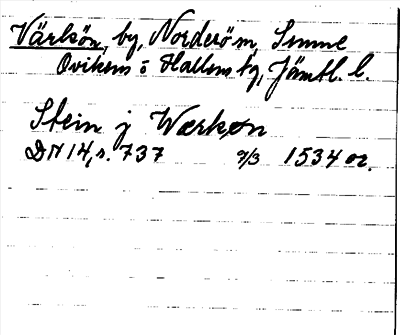 Värkön, by, Norderöm, Sunne
Ovikens o Hallens tg, Jämtl. l.
Stein j Wærkøn
DN 14, s. 737 9/3 1534 or.